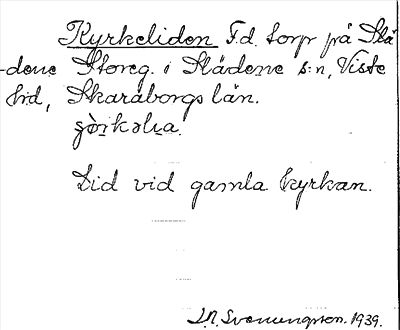 Kyrkeliden F.d. torp på Slä
-dene Storeg. i Slädene s:n, Viste
hd, Skaraborgs län.
Lid vid gamla kyrkan.
J.N. Svenungson. 1939.